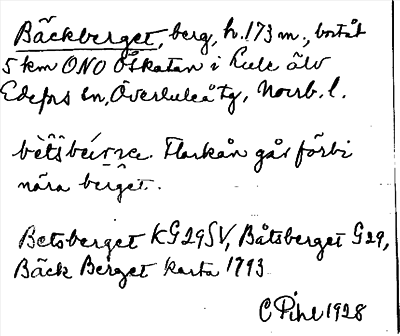 Bäckberget, berg, h. 173 m., bortåt
5 km ONO Åskatan i Lule älv
Edefors sn, Överluleå tg, Norrb. l.
Flarkån går förbi
nära berget.
Betsberget KG29SV, Båtsberget G29,
Bäck Berget karta 1793
C Pihl 1928